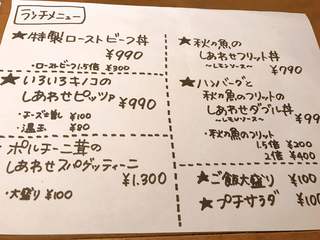 ランチメニュー
★特製ローストビーフ丼
¥990
・ローストビーフ1.5倍 ¥300
★いろいろキノコの
しあわせピッツァ
¥990
・チーズ増し ¥100
・温玉 ¥80
★ポルチーニ茸の
しあわせスパゲッティーニ
¥1.300
・大盛り ¥100
★秋の魚の
しあわせフリット丼
〜レモンソース〜
¥790
★ハンバーグと
秋の魚のフリットの
しあわせダブル丼
〜レモンソース〜
¥990
・秋の魚のフリット
1.5倍 200
2倍 400
★ご飯大盛り ¥100
★プチサラダ ¥100